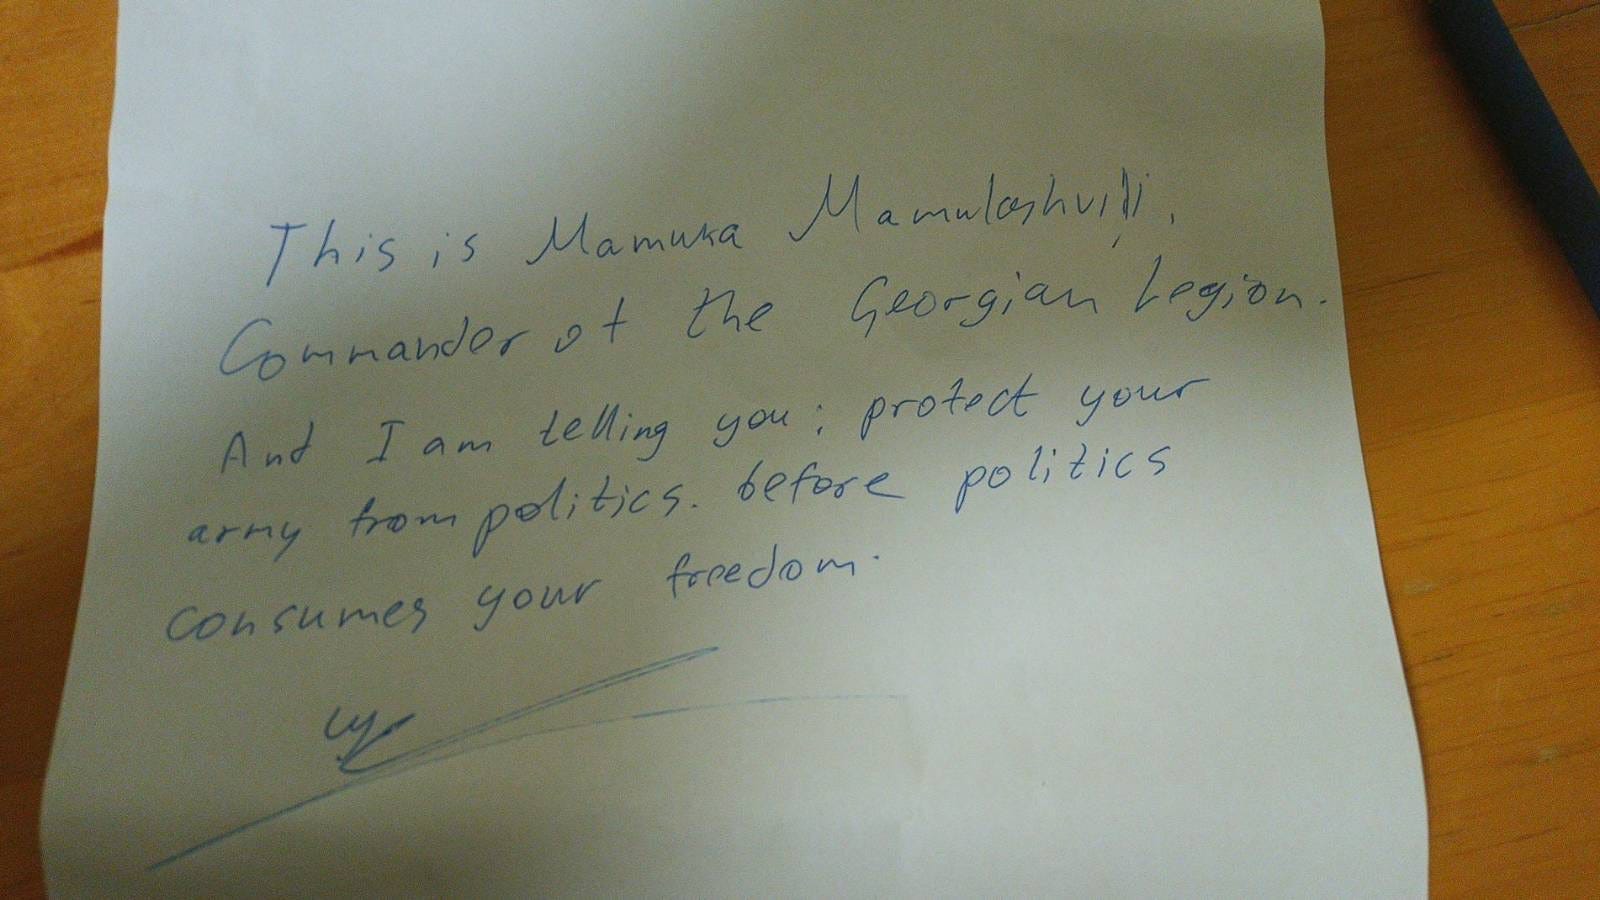 This is Mamuka Mamulashvili,
Commander of the Georgian Legion.
And I am telling you: protect your
army from politics. before politics
consumes your freedom.